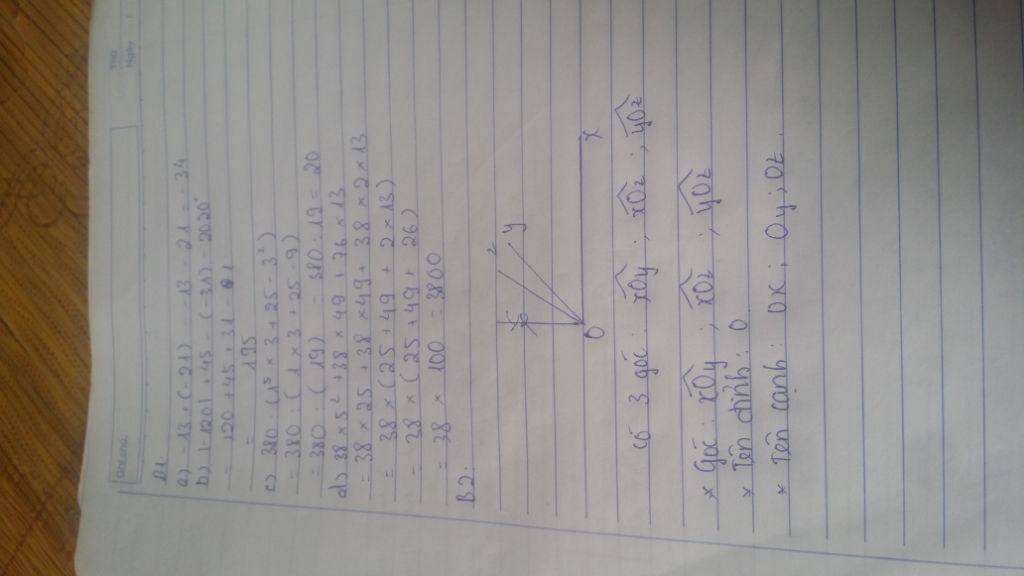 Thứ
Ngày
B1
a) -13 + (-21) = -13 - 21 = -34
b) |-120| + 45 - (-31) - 2020⁰
= 120 + 45 + 31 - 1
= 195
c) 380 : (1⁵ × 3 + 25 - 3²)
= 380 : (1 × 3 + 25 - 9)
= 380 : (19) = 380 : 19 = 20
d) 38 × 5² + 38 × 49 + 76 × 13
= 38 × 25 + 38 × 49 + 38 × 2 × 13
= 38 × (25 + 49 + 2 × 13)
= 38 × (25 + 49 + 26)
= 38 × 100 = 3800
B2:
z
y
O
x
có 3 góc: xOy ; xOz ; yOz
* Góc: xOy ; xOz ; yOz
* Tên đỉnh: O
* Tên cạnh: Ox ; Oy ; Oz.